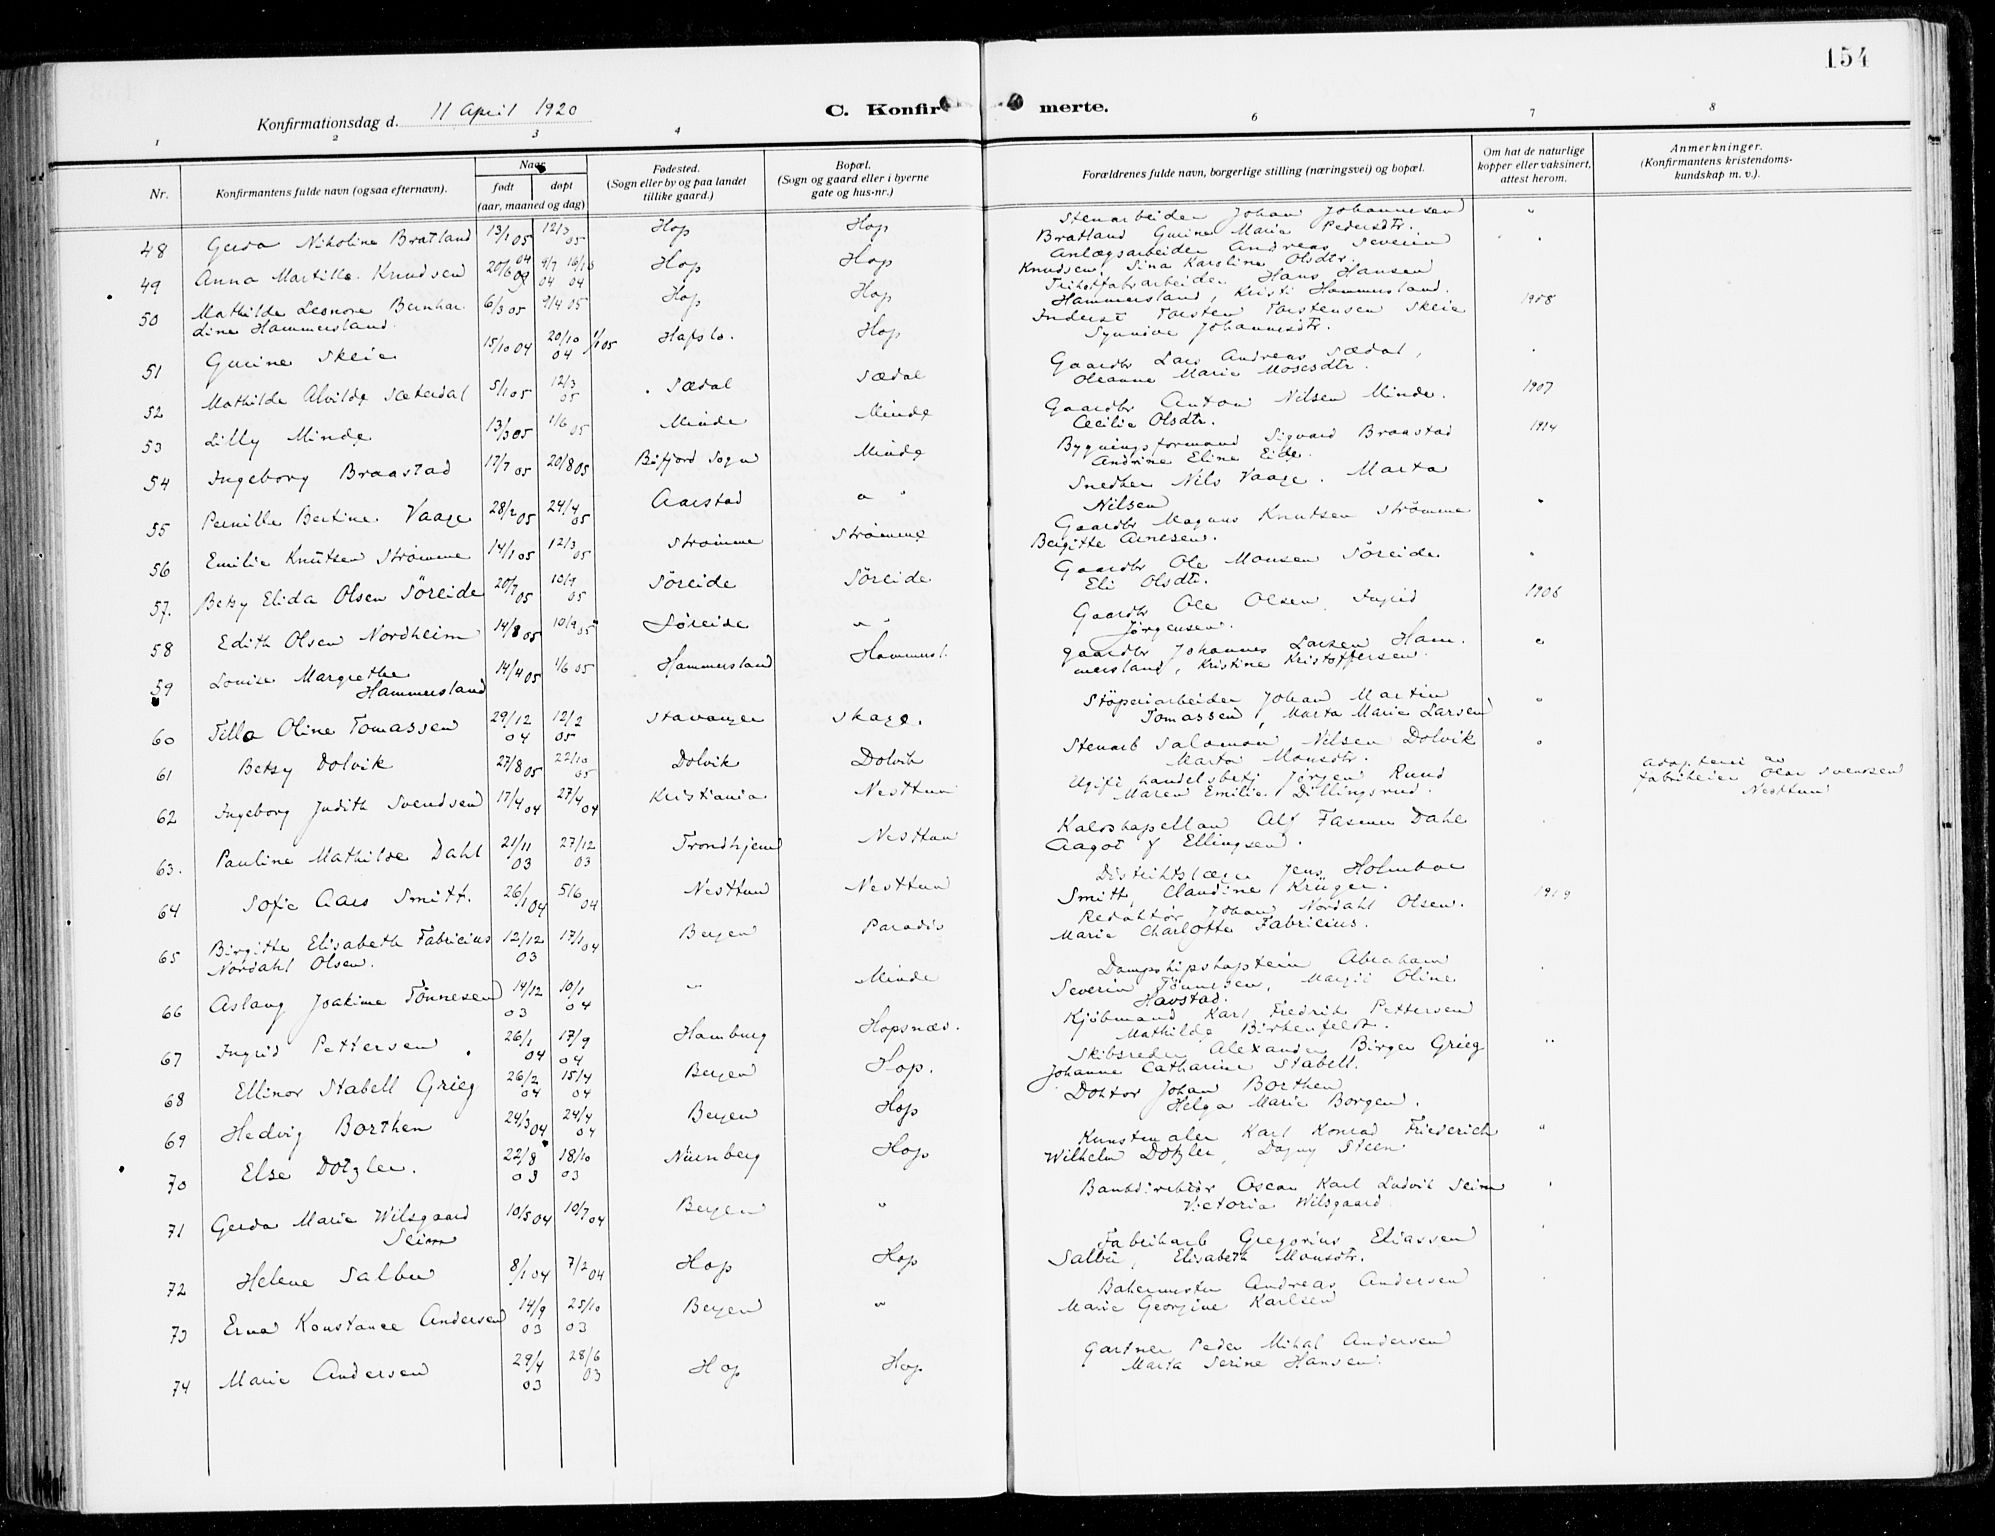 154
Konfirmationsdag d. 11 April 1920
C. Konfir merte.
1 2 3 4 6 7 8
Nr. Konfirmantens fulde navn (ogsaa efternavn). Naar født døpt (aar, maaned og dag) Fødested. (Sogn eller by og paa landet tillike gaard.) Bopæl. (Sogn og gaard eller i byerne gate og hus-nr.) Forældrenes fulde navn, borgerlige stilling (næringsvei) og bopæl. Om hat de naturlige kopper eller vaksinert, attest herom. Anmerkninger. (Konfirmantens kristendoms-kundskap m. v.).
48 Gerda Nikoline Bratland 13/1 05 12/3 05 Hop Hop Stenarbeider Johan Johannesen
Bratland Gurine Marie Pedersdtr. "
49 Anna Martille Knudsen 20/6 04 9/7 04 16/10 04 Hop Hop Anlægsarbeider Andreas Severin
Knudsen, Sina Karoline Olsdtr. "
50 Mathilde Leonore Bernhar 6/3 05 9/4 05 Hop Hop Trikotfabrarbeider Hans Hansen
dine Hammersland Hammersland, Kristi Hammersland. 1908
51 Gurine Skeie 15/10 04 20/10 04 1/1 05 Hafslo. Hop Inderst Torsten Torstensen Skeie
Synnøve Johannesdtr.
52 Mathilde Alvilde Sæterdal 5/1 05 12/3 05 Sædal Sædal Gaardbr Lars Andreas Sædal,
Oleanne Marie Mosesdtr.
53 Lilly Minde 13/3 05 1/6 05 Minde Minde Gaardbr Anton Nilsen Minde. 1907
Cecilie Olsdtr.
54 Ingeborg Braastad 17/7 05 20/8 05 Bøfjord Sogn Minde Bygningsformand Sigvard Braastad 1914
Andrine Eline Eide.
55 Pernille Bertine Vaage 28/2 05 24/4 05 Aarstad " " Snedker Nils Vaage. Marta
Nilsen
56 Emilie Knutsen Strømme 14/1 05 12/3 05 Strømme Strømme Gaardbr Magnus Knutsen Strømme "
Bergitte Arnesen.
57. Betsy Elida Olsen Söreide 20/7 05 10/9 05 Söreide Söreide Gaardbr Ole Monsen Söreide "
Eli Olsdtr.
58 Edith Olsen Nordheim 14/8 05 10/9 05 Søreide " " Gaardbr Ole Olsen, Ingrid 1906
Jørgensen.
59 Louise Margrethe 14/4 05 1/6 05 Hammersland Hammersl. gaardbr Johannes Larsen Ham. "
Hammersland mersland, Kristine Kristoffersen.
60 Tilla Oline Tomassen 29/12 04 12/2 05 Stavanger Skage. Stöperiarbeider Johan Martin "
Tomassen, Marta Marie Larsen
61 Betsy Dolvik 27/8 05 22/10 05 Dolvik Dolvik Stenarb Salomon Nilsen Dolvik "
Marta Monsdtr.
62 Ingeborg Judith Svendsen 17/4 04 27/4 04 Kristiania Nesttun Ugift handelsbetj Jørgen Ruud
Maren Emilie Dillingsrud.
Adoptert av
fabrikeier Olav Svendsen
Nesttun
63. Pauline Mathilde Dahl 21/11 03 27/12 03 Trondhjem Nesttun Kaldskapellan Alf Fasmer Dahl
Aagot f Ellingsen.
64 Sofie Aars Smitt. 26/1 04 5/6 04 Nesttun Nesttun Distriktslæge Jens Holmboe
Smitt, Claudine Krüger.
65 Birgitte Elisabeth Fabricius 12/12 03 17/1 04 Bergen Paradis Redaktør Johan Nordahl Olsen. 1919
Nordahl Olsen. Marie Charlotte Fabricius.
66 Aslaug Joakime Tönnesen 14/12 03 10/1 04 " Minde Dampskipskaptein Abraham
Severin Tönnesen, Margit Oline
Havstad.
67 Ingrid Pettersen 26/1 04 17/9 04 Hamburg Hopsnæs. Kjøbmand Karl Fredrik Pettersen
Mathilde Birkenfeldt.
68 Ellinor Stabell Grieg 26/2 04 15/4 04 Bergen Hop. Skibsreder Alexander Birger Grieg "
Johanne Catharine Stabell.
69 Hedvig Borthen 24/3 04 24/4 04 Bergen Hop Doktor Johan Borthen
Helga Marie Borgen.
70 Else Dotzler. 22/8 03 18/10 03 Nürnberg Hop Kunstmaler Karl Konrad Friederich "
Wilhelm Dotzler, Dagny Steen
71 Gerda Marie Wilsgaard 10/5 04 10/7 04 Bergen " Bankdirektör Oscar Karl Ludvik Seim
Seim Victoria Wilsgaard
72 Helene Salbu 8/1 04 7/2 04 Hop Hop Fabrikarb Gregorius Eliassen
Salbu, Elisabeth Monsdtr.
73 Erna Konstance Andersen 14/9 03 25/10 03 Bergen " Bakermester Andreas Andersen
Marie Georgine Karlsen
74 Marie Andersen 29/4 03 28/6 03 Hop Hop Gartner Peder Mikal Andersen
Marta Serine Hansen.